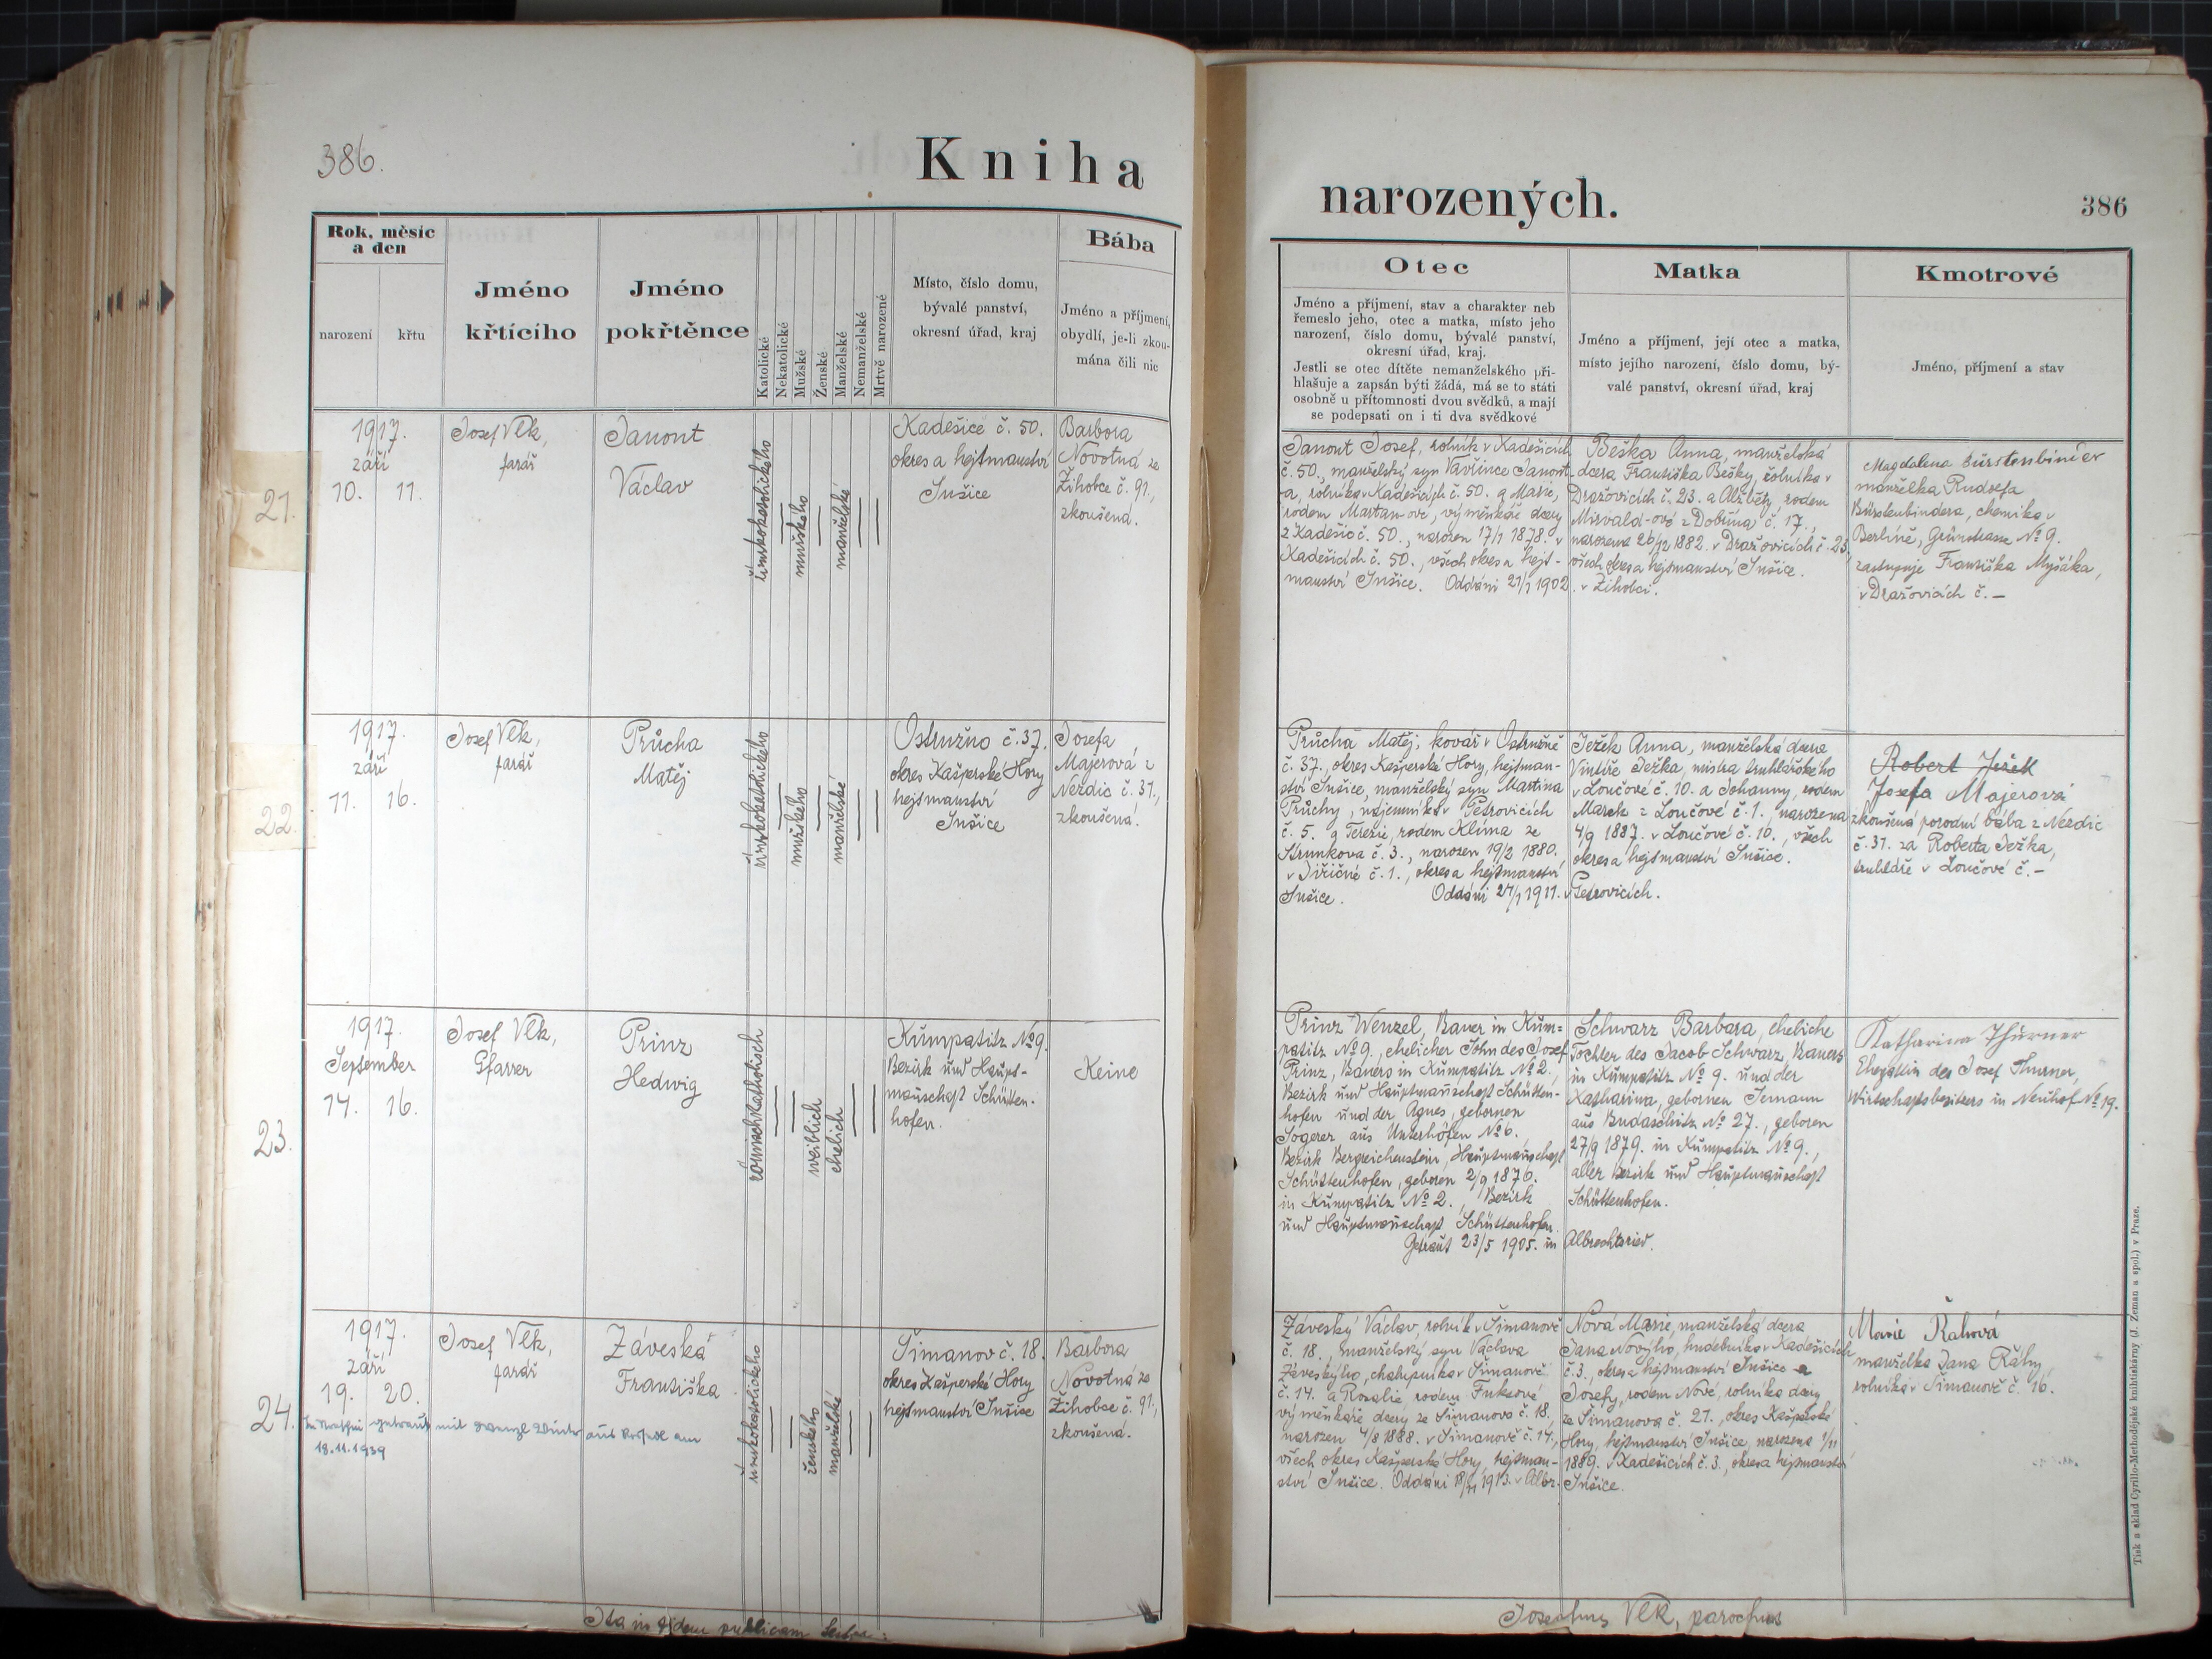 386.
Kniha
Rok, měsíc
a den
narození
křtu
Jméno
křtícího
Jméno
pokřtěnce
Katolické
Nekatolické
Mužské
Ženské
Manželské
Nemanželské
Mrtvě narozené
Místo, číslo domu,
bývalé panství,
okresní úřad, kraj
Bába
Jméno a příjmení,
obydlí, je-li zkou-
mána čili nic
21.
1917.
září
10. 11.
Josef Vlk,
farář
Janout
Václav
římskokatolického
mužského
manželské
Kadešice č. 50.
okres a hejtmanství
Sušice
Barbora
Novotná ze
Žihobce č. 91.,
zkoušená.
22.
1917.
září
11. 16.
Josef Vlk,
farář
Průcha
Matěj
římskokatolického
mužského
manželské
Ostružno č. 37.
okres Kašperské Hory
hejtmanství
Sušice
Josefa
Majerová z
Nezdic č. 31.,
zkoušená.
23.
1917.
September
14. 16.
Josef Vlk,
Pfarrer
Prinz
Hedwig
römischkatholisch
weiblich
ehelich
Kumpatitz No 9.
Bezirk und Haupt-
mannschaft Schütten-
hofen.
Keine
24.
1917.
září
19. 20.
Josef Vlk,
farář
Záveská
Františka
římskokatolického
ženského
manželské
Šimanov č. 18.
okres Kašperské Hory
hejtmanství Sušice
Barbora
Novotná ze
Žihobce č. 91.,
zkoušená.
getraut mit Wenzl aus am
18.11.1939
Ita in fidem publicam testor:
narozených.
386
Otec
Jméno a příjmení, stav a charakter neb
řemeslo jeho, otec a matka, místo jeho
narození, číslo domu, bývalé panství,
okresní úřad, kraj.
Jestli se otec dítěte nemanželského při-
hlašuje a zapsán býti žádá, má se to státi
osobně u přítomnosti dvou svědků, a mají
se podepsati on i ti dva svědkové
Matka
Jméno a příjmení, její otec a matka,
místo jejího narození, číslo domu, bý-
valé panství, okresní úřad, kraj
Kmotrové
Jméno, příjmení a stav
Janout Josef, rolník v Kadešicích
č. 50., manželský syn Vavřince Janout-
a, rolníka v Kadešicích č. 50. a Marie,
rodem Martan-ové, výměnkáře dcery
z Kadešic č. 50., narozen 17/1 1878. v
Kadešicích č. 50., všech okres a hejt-
manství Sušice. Oddáni 21/1 1902.
Beška Anna, manželská
dcera Františka Bešky, rolníka v
Dražovicích č. 23. a Alžběty, rodem
Mirvald-ové z Dobřína č. 17.,
narozena 26/12 1882. v Dražovicích č. 23,
všech okres a hejtmanství Sušice.
v Žihobci.
Magdalena Bürstenbinder
manželka Rudolfa
Bürstenbindera, chemika v
Berlíně, Grünstrasse No 9.
zastupuje Františka Myšáka,
v Dražovicích č. –
Průcha Matěj, kovář v Ostružně
č. 37., okres Kašperské Hory, hejtman-
ství Sušice, manželský syn Martina
Průchy, nájemníka v Petrovicích
č. 5. a Terezie, rodem Klíma ze
Strunkova č. 3., narozen 19/2 1880.
v Jiřičné č. 1., okres a hejtmanství
Sušice. Oddáni 24/1 1911. v
Ježek Anna, manželská dcera
Vintíře Ježka, mistra truhlářského
v Loučové č. 10. a Johanny, rodem
Marek z Loučové č. 1., narozena
4/9 1887. v Loučové č. 10., všech
okres a hejtmanství Sušice.
Petrovicích.
Robert Ježek
Josefa Majerová
zkoušená porodní bába z Nezdic
č. 31. za Roberta Ježka,
truhláře v Loučové č. –
Prinz Wenzel, Bauer in Kum=
patitz No 9., ehelicher Sohn des Josef
Prinz, Bauers in Kumpatitz No 2.,
Bezirk und Hauptmannschaft Schütten-
hofen und der Agnes, gebornen
Sogerer aus Unterhöfen No 6.
Bezirk Bergreichenstein, Hauptmannschaft
Schüttenhofen, geboren 2/9 1876.
in Kumpatitz No 2., Bezirk
und Hauptmannschaft Schüttenhofen.
Getraut 23/5 1905. in
Schwarz Barbara, eheliche
Tochter des Jacob Schwarz, Bauers
in Kumpatitz No 9. und der
Katharina, gebornen Semann
aus Budaschitz No 27., geboren
27/9 1879. in Kumpatitz No 9.,
aller Bezirk und Hauptmannschaft
Schüttenhofen.
Albrechtsried.
Katharina Thürner
Ehegattin des Josef Thurner,
Wirtschaftsbesitzers in Neuhof No 19.
Záveský Václav, rolník v Šimanově
č. 18., manželský syn Václava
Záveskýho, chalupníka v Šimanově
č. 14. a Rosalie, rodem Fuksové
výměnkáře dcery ze Šimanova č. 18.
narozen 4/8 1888. v Šimanově č. 14.,
všech okres Kašperské Hory, hejtman-
ství Sušice. Oddáni 18/11 1913. v Albr.
Nová Marie, manželská dcera
Jana Novýho, hudebníka v Kadešicích
č. 3., okres a hejtmanství Sušice a
Josefy, rodem Nové, rolníka dcery
ze Šimanova č. 21., okres Kašperské
Hory, hejtmanství Sušice, narozena 1/11
1889. v Kadešicích č. 3., okres a hejtmanství
Sušice.
Marie Řahová
manželka Jana Řáhy,
rolníka v Šimanově č. 16.
Josephus Vlk, parochus
Tisk a sklad Cyrillo-Methodějské knihtiskárny (J. Zeman a spol.) v Praze.